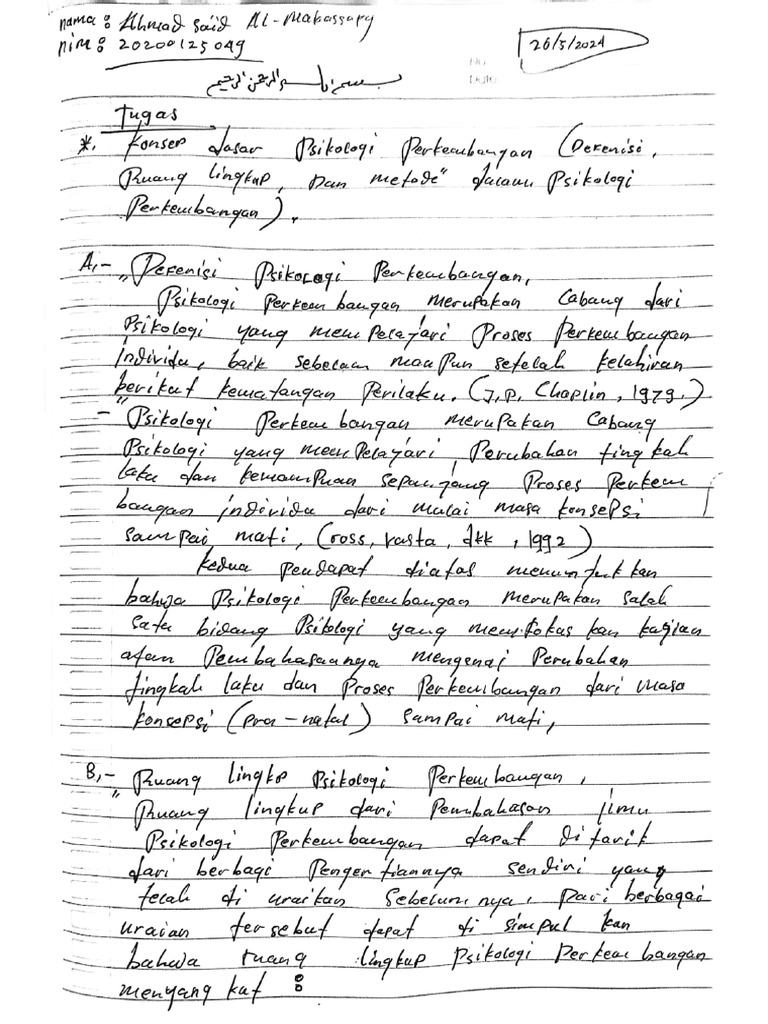 nama : Ahmad Said Al-Makassary
nim : 20200125049
26/5/2024
No
Date
بسم الله الرحمن الرحيم
Tugas
*. Konsep dasar Psikologi Perkembangan (Defenisi,
Ruang lingkup, Dan metode" dalam Psikologi
Perkembangan).
A,- "Defenisi Psikologi Perkembangan,
Psikologi Perkembangan merupakan Cabang dari
Psikologi yang mempelajari Proses Perkembangan
individu, baik sebelum maupun setelah kelahiran
berikut kematangan Perilaku. (J.P. Chaplin, 1979.)
- "Psikologi Perkembangan merupakan Cabang
Psikologi yang mempelajari Perubahan tingkah
laku dan kemampuan sepanjang Proses Perkem
bangan individu dari mulai masa konsepsi
sampai mati, (ross, vasta, dkk, 1992)
kedua Pendapat diatas menunjukkan
bahwa Psikologi Perkembangan merupakan salah
satu bidang Psikologi yang memfokus kan kagian
atan Pembahasannya mengenai Perubahan
tingkah laku dan Proses Perkembangan dari masa
konsepsi (pra-natal) sampai mati,
B,- "Ruang lingkp Psikologi Perkembangan,
Ruang lingkup dari Pembahasan ilmu
Psikologi Perkembangan dapat di tarik
dari berbagi Pengertiannya sendiri yang
telah di uraikan Sebelum nya, Dari berbagai
uraian tersebut dapat di simpul kan
bahwa ruang lingkup Psikologi Perkembangan
menyang kut :